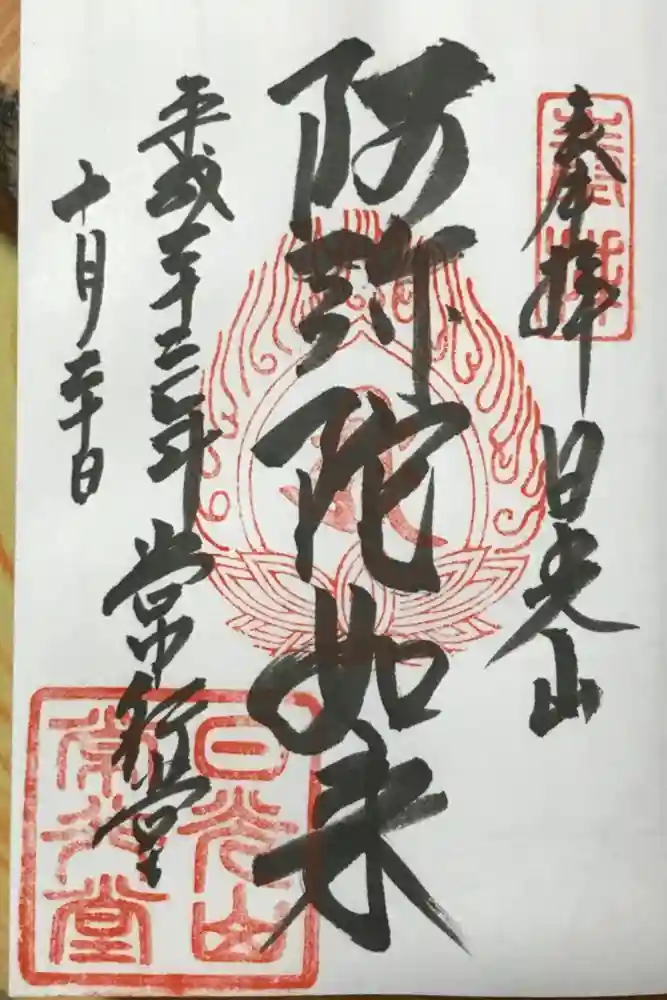 奉拝
奉拝 日光山
阿弥陀如来
平成二十二年 常行堂
十月二十日
日光山
常行堂